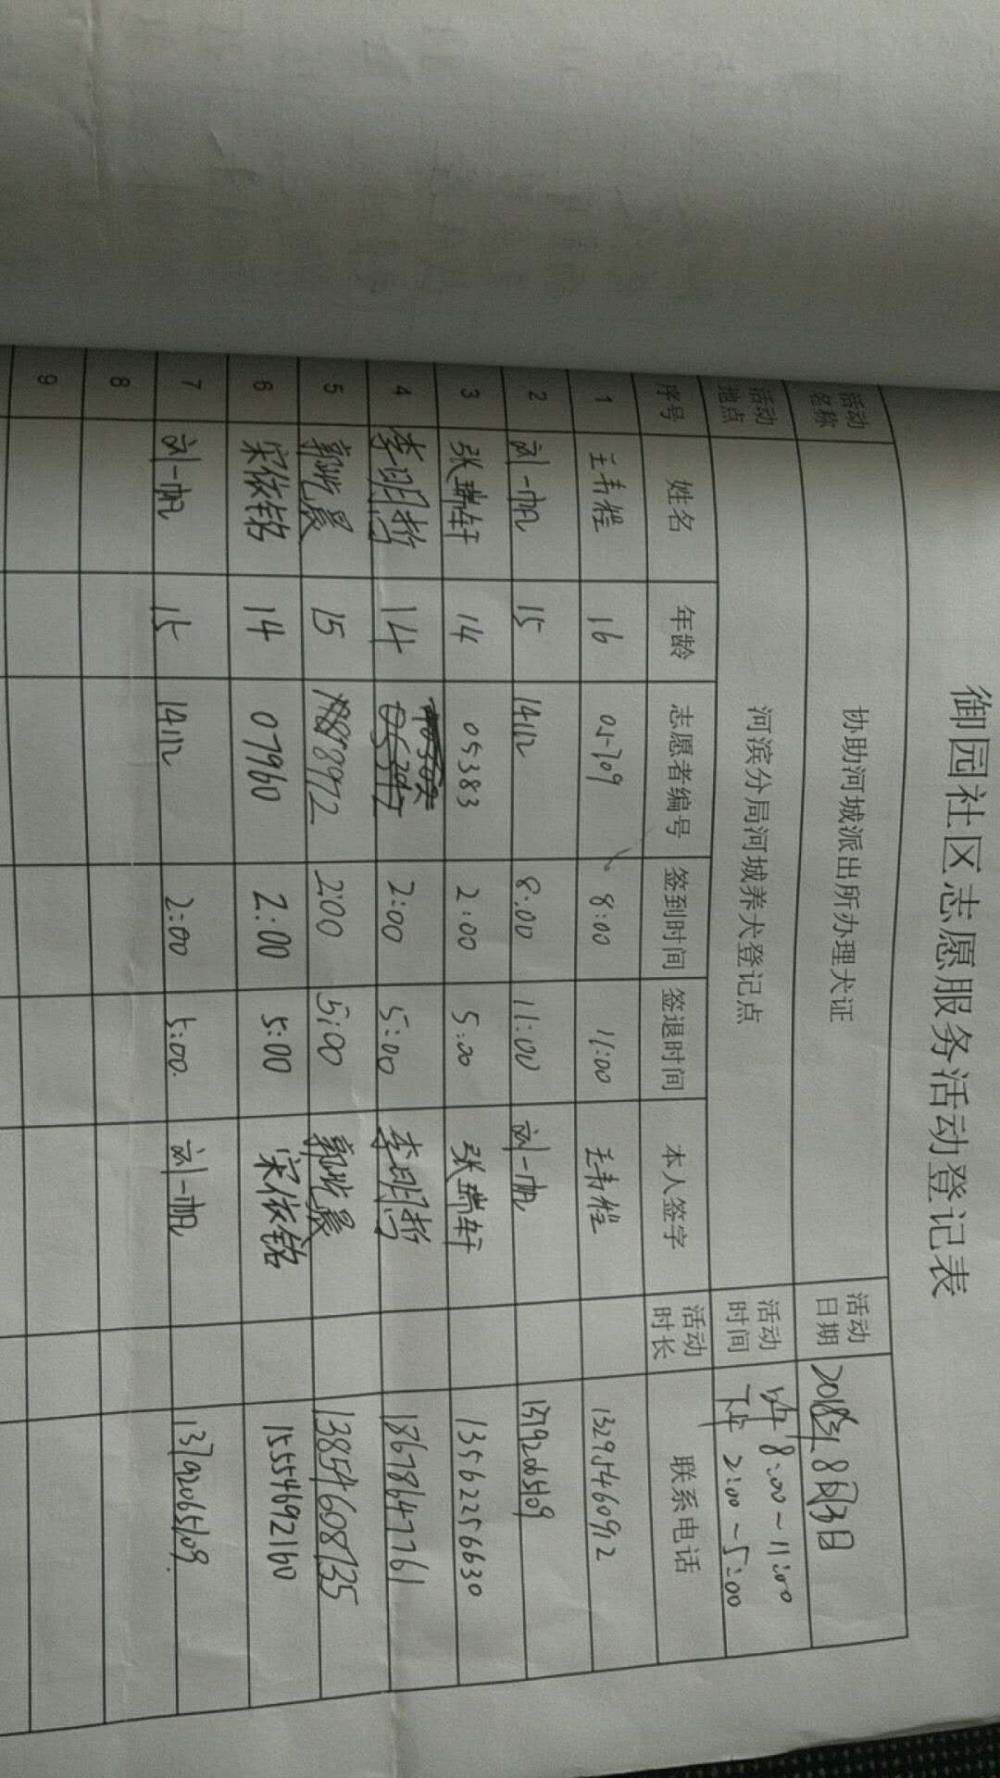 御园社区志愿服务活动登记表
活动名称 协助河城派出所办理犬证 活动日期 2018年8月3日
活动地点 河滨分局河城养犬登记点 活动时间 上午 8:00~11:00 下午 2:00~5:00
序号 姓名 年龄 志愿者编号 签到时间 签退时间 本人签字 活动时长 联系电话
1 16 8:00 11:00 13295460912
2 刘一帆 15 14112 8:00 11:00 刘一帆 13792065109
3 张瑞轩 14 05383 2:00 5:00 张瑞轩 13562256630
4 李明哲 14 2:00 5:00 李明哲 18678647761
5 15 8972 2:00 5:00 13854608735
6 宋依铭 14 07960 2:00 5:00 宋依铭 15554692160
7 刘一帆 15 14112 2:00 5:00 刘一帆 13792065109
8
9